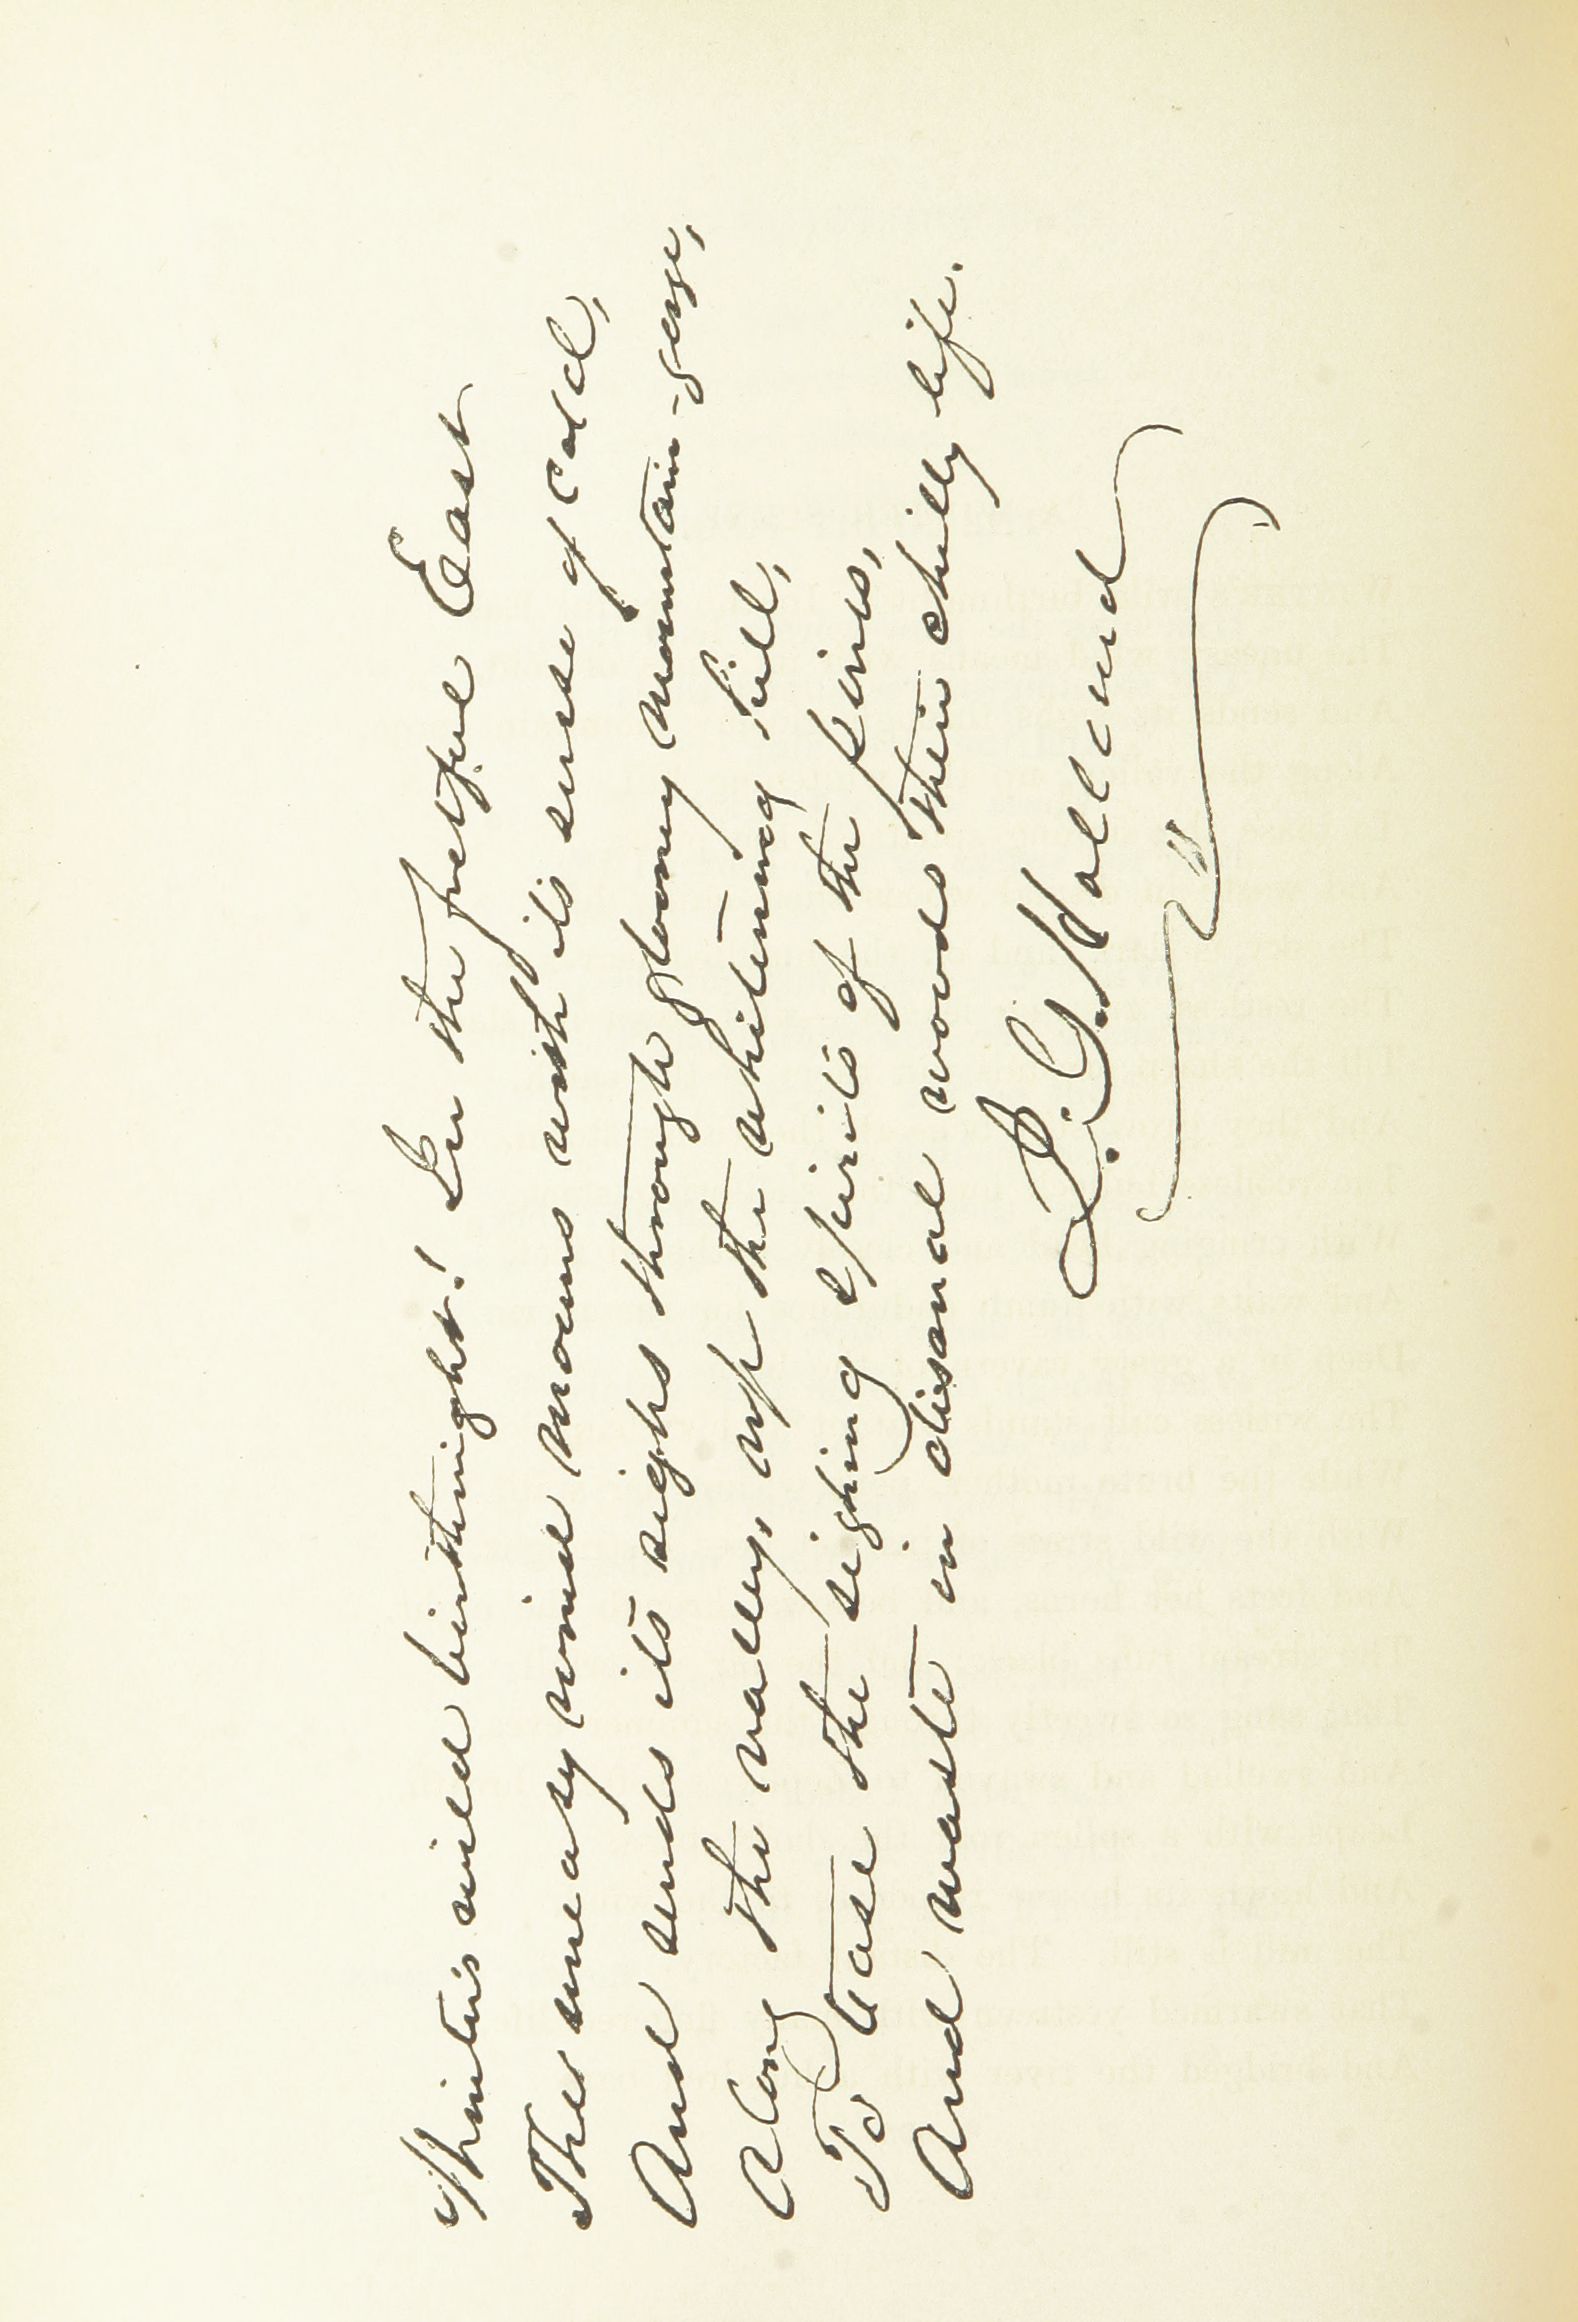 Winter's wild birthnight! In the fretful East
The uneasy wind moans with its sense of cold,
And sends its sighs through gloomy mountain-gorge,
Along the valley, up the whitening hill,
To tease the sighing spirits of the pines,
And waste in dismal woods their chilly life.
J. G. Holland